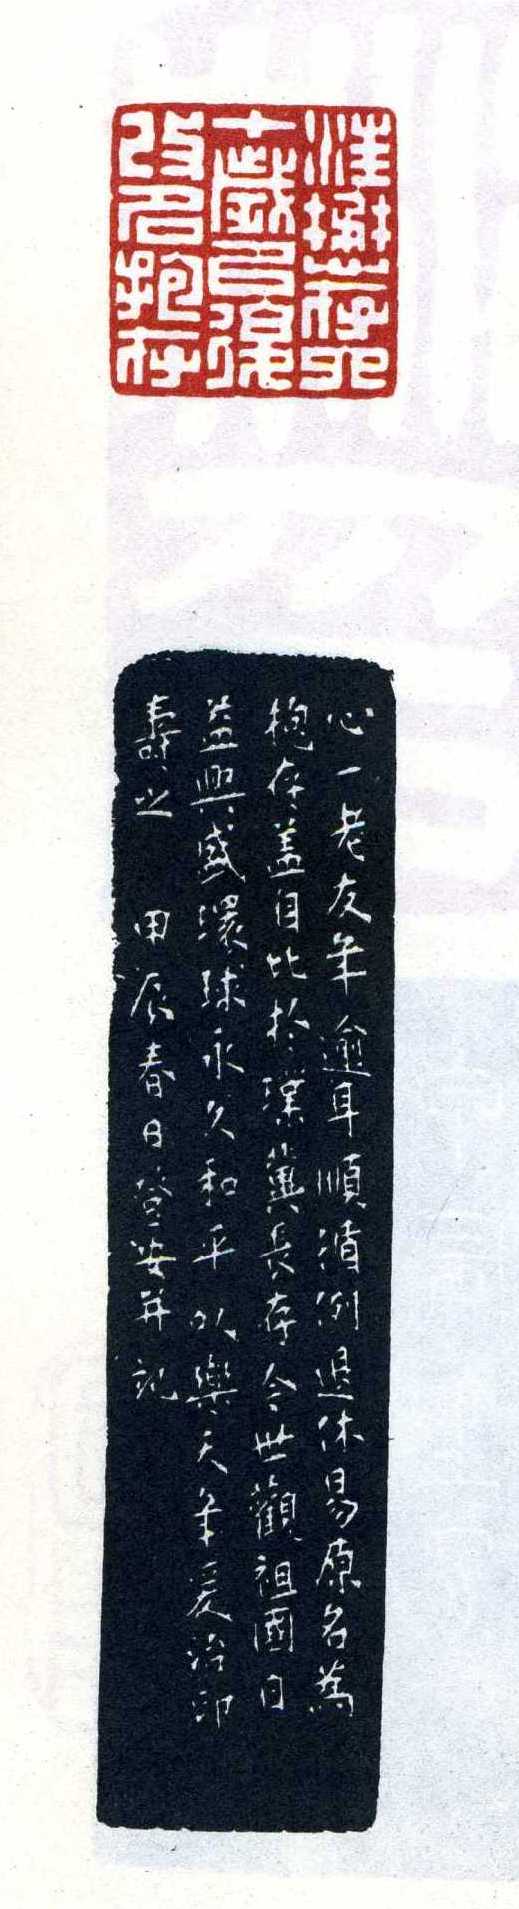 汪
十歲已後
改名抱存
心一老友年逾耳順循例退休易原名為
抱存蓋自比於璞冀長存今世觀祖國日
益興盛環球永久和平以樂天年爰治印
壽之 甲辰春日登安并記